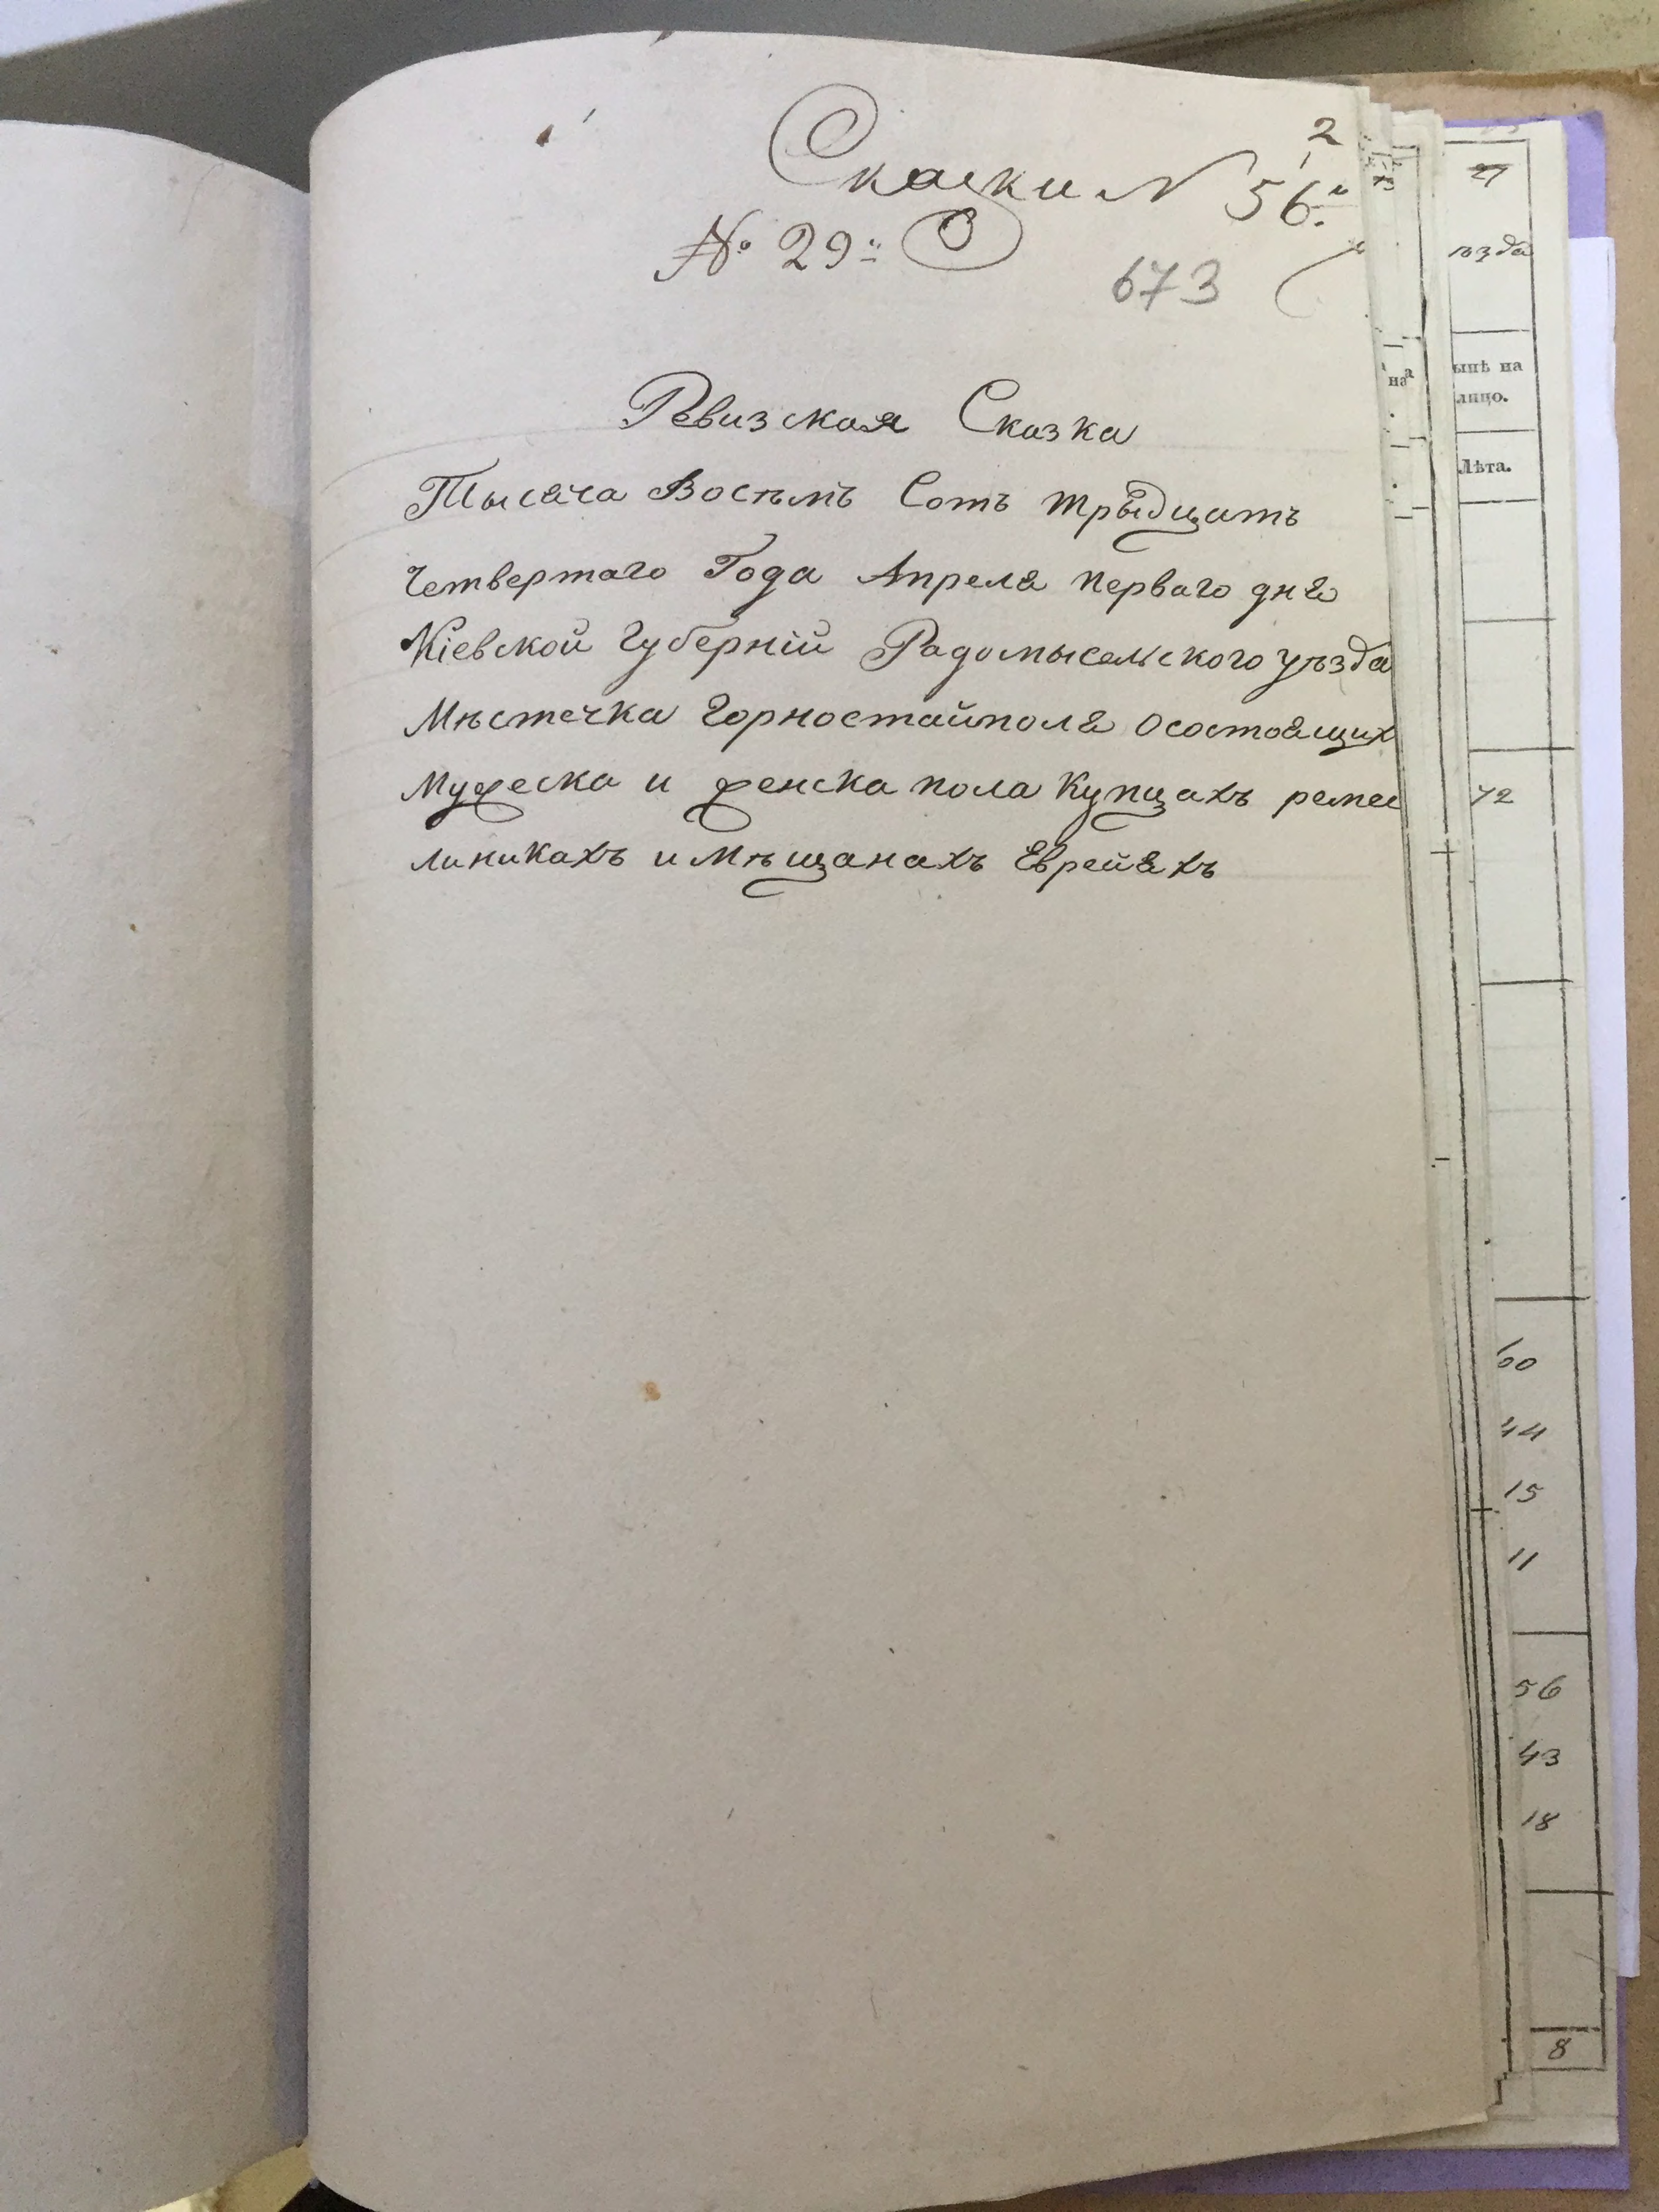 2
Сказки N 56й
№ 29й
673
Ревизская Сказка
Тысяча Восѣмъ Сотъ трыдцатъ
Четвертаго Года Апреля перваго дня
Кіевской Губерніи Радомысельского уѣзда
Мѣстечка Горностайполя осостоящих
Мужеска и женска пола Купцахъ ремес
линикахъ и Мѣщанахъ Еврейяхъ
ѣзда
на
ынѣ на
лицо.
Лѣта.
72
60
44
15
11
56
43
18
8